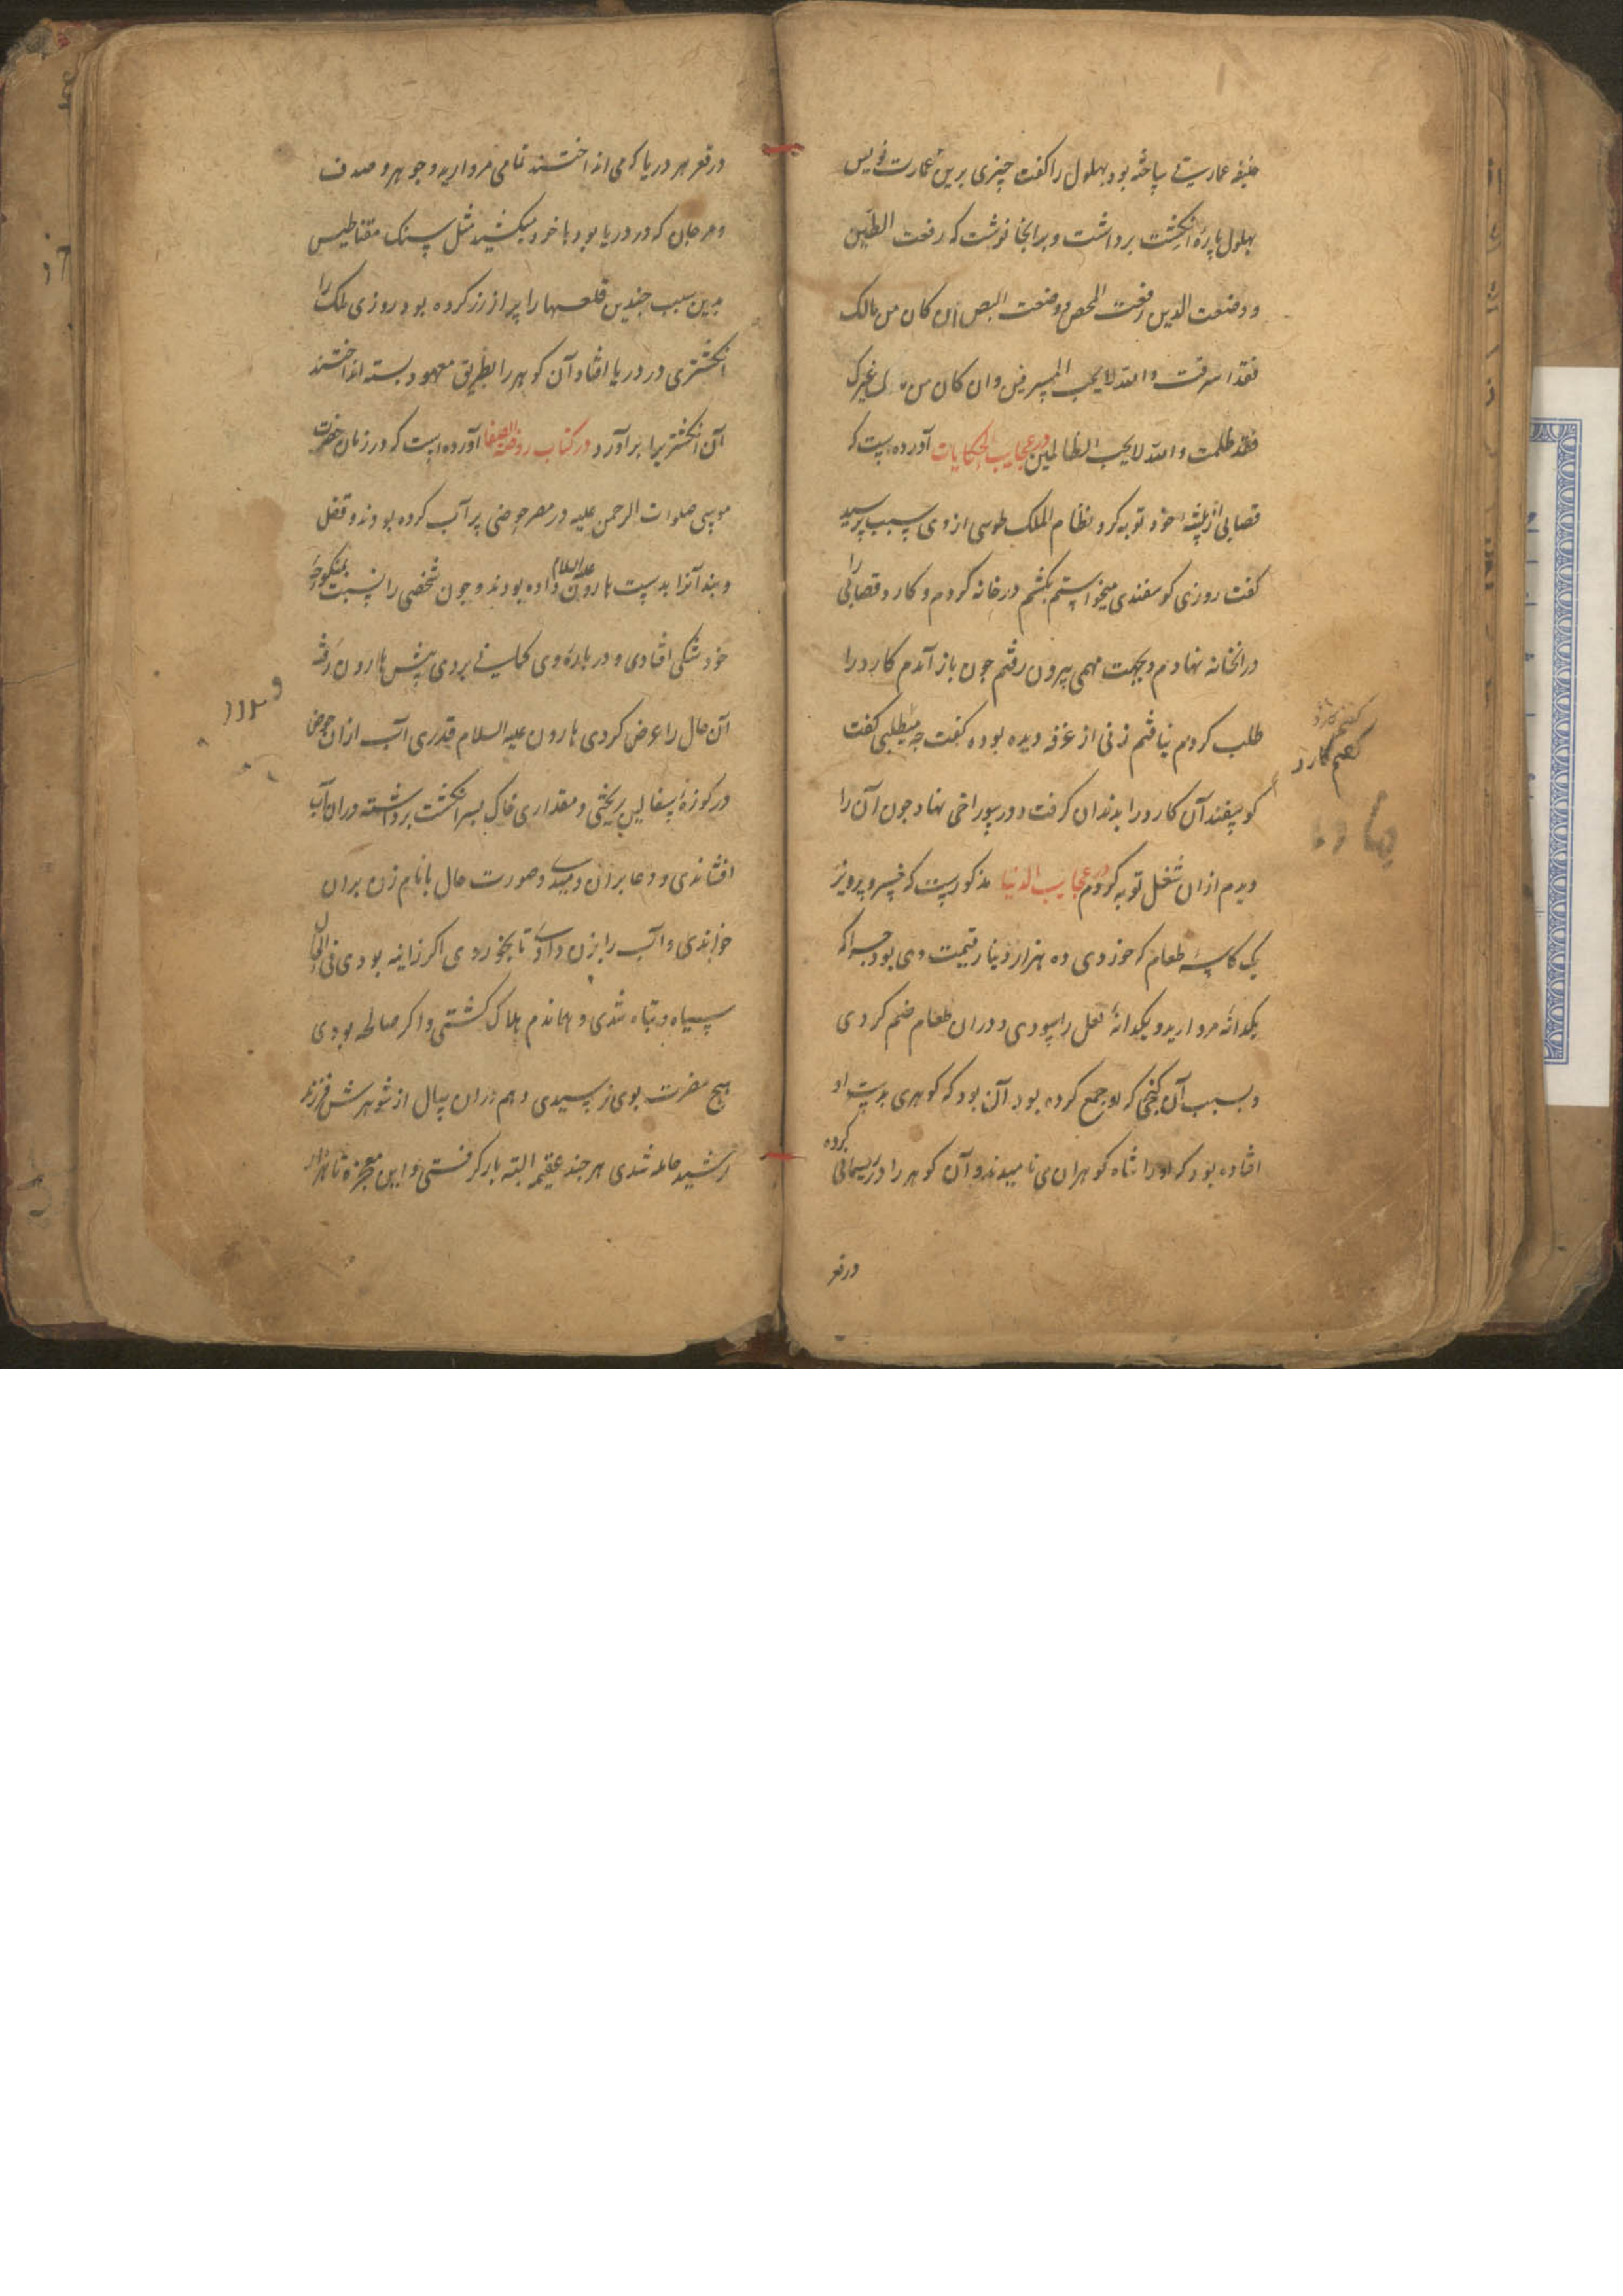 خلیفه عمارتی ساخته بود بهلول را کفت چیزی برین عمارت نویس
بهلول پارهٔ انکشت برداشت و برانجا نوشت که رفعت الطین
و وضعت الدین رفعت الجص و وضعت النص ان کان من مالک
فقد اسرفت والله لا یحب المسرفین وان کان من مال غیرک
فقد ظلمت والله لا یحب الظالمین در عجایب الحکایات آورده است که
قصابی از پیشهٔ خود توبه کرد نظام الملک طوسی از وی سبب پرسید
کفت روزی کوسفندی میخواستم بکشم در خانه کردم و کارد قصابی را
درانخانه نهادم و بجهت مهمی بیرون رفتم چون باز آمدم کارد را
طلب کردم نیافتم زنی از غرفه دیده بوده کفت چه میطلبی کفت
کفتم کارد
کفتم کارد
کوسفند آن کارد را بدندان کرفت و در سوراخی نهاد چون آن را
دیدم ازان شغل توبه کردم در عجایب الدنیا مذکورست که خسرو پرویز
یک کاسهٔ طعام که خوردی ده هزار دینار قیمت وی بود چراکه
یکدانهٔ مروارید و یکدانهٔ لعل را سودی و دران طعام ضم کردی
و بسبب آن کنجی که او جمع کرده بود آن بود که کوهری بدست او
افتاده بود که او را شاه کوهران می نامیدند و آن کوهر را در ریسمانی کرده
در قعر
در قعر هر دریا که می انداختند تمامی مروارید و جوهر و صدف
و مرجان که در دریا بود با خود میکشید مثل سنک مقناطیس
بدین سبب چندین قلعها را پر از زر کرده بود روزی ملک را
انکشتری در دریا افتاد آن کوهر را بطریق معهود بسته انداختند
آن انکشتر را برآورد در کتاب روضة الصفا آورده است که در زمان حضرت
موسی صلوات الرحمن علیه در مصر حوضی پر آب کرده بودند و قفل
و بند آنرا بدست هارون علیه السلام داده بودند و چون شخصی را نسبت بمنکوحهٔ
خود شکی افتادی و در بارهٔ وی کمانی بردی پیش هارون رفته
آن حال را عرض کردی هارون علیه السلام قدری آب ازان حوض
در کوزهٔ سفالین ریختی و مقداری خاک بسر انکشت برداشته دران آب
افشاندی و دعا بران دمیدی و صورت حال با نام زن بران
خواندی و آب را بزن دادی تا بخوردی اکر زانیه بودی فی الحال
سیاه و تباه شدی و هماندم هلاک کشتی و اکر صالحه بودی
هیچ مضرت بوی نرسیدی و هم دران سال از شوهرش فرزند
رشید حامله شدی هر چند عقیمه البته بار کرفتی و این معجزه تا هزار